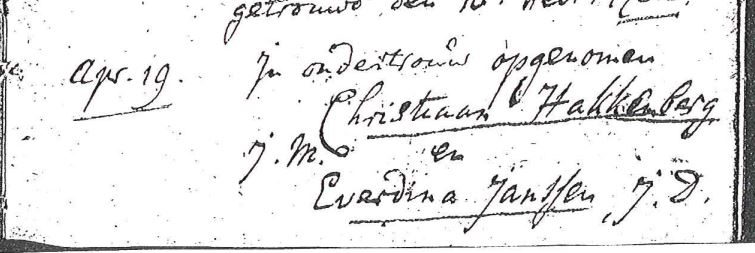 getrouwd den
Apr. 19. Jn ondertrouw opgenomen
Christiaan Hakkenberg
J. M. en
Everdina Janssen, J. D.